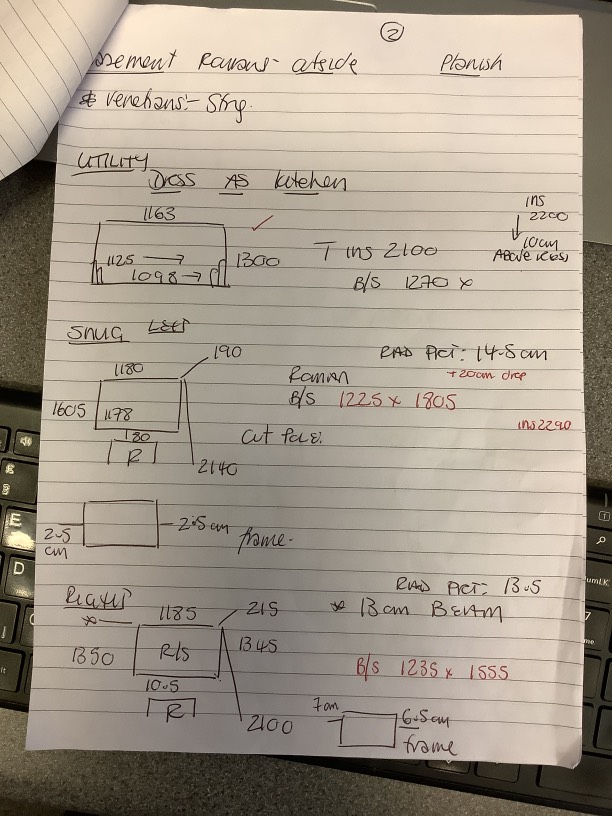 ②
Romans - outside Planish
& Venetians:- Stry.
UTILITY
Dress AS kitchen
1163
ins
2200
10cm
1125
1300
T ins 2100
1098
B/S 1270 x
SNUG LEFT
190
RAD PACT: 14.5cm
1180
Roman
+20cm drop
1605
1178
B/S 1225 x 1805
ins 2290
180
Cut
R
2140
2.5cm
2.5
cm
frame.
RAD PACT: 13.5
RIGHT
1185
215
* 13cm BEAM
1350
R/S
1345
B/S 1235 x 1555
10.5
R
2100
7cm
6.5cm
frame